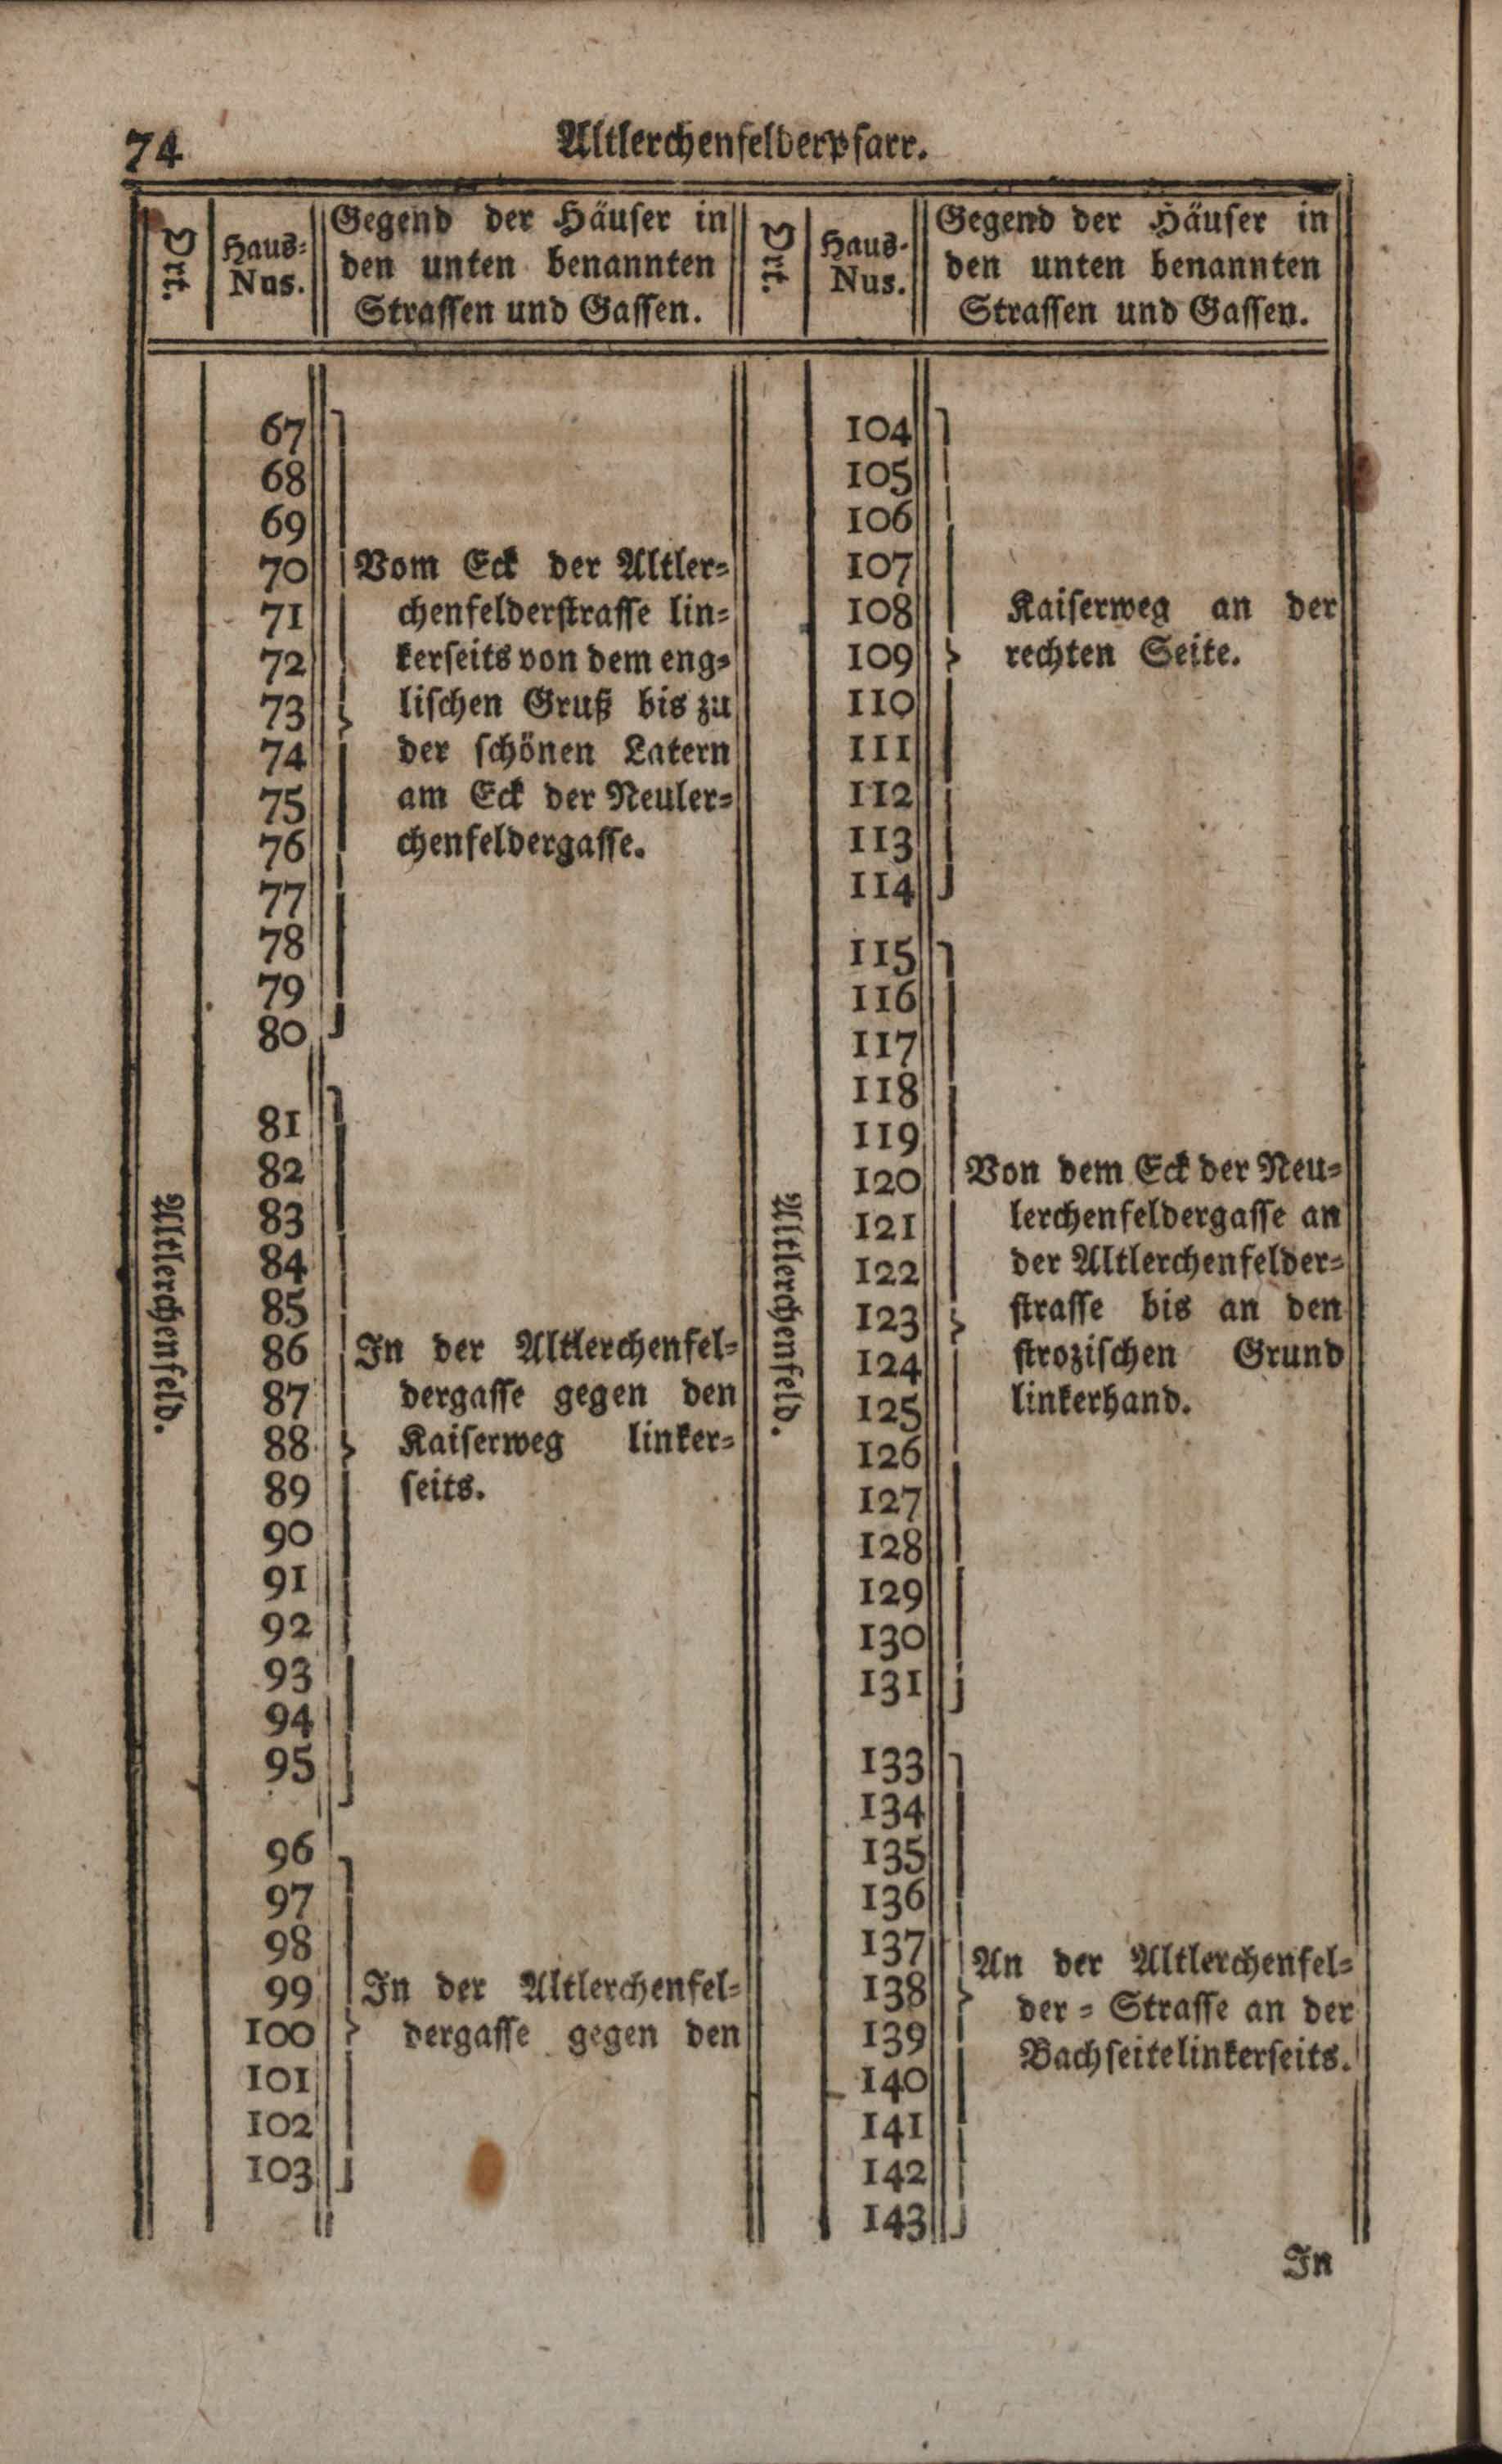 74
Altlerchenfelderpfarr.
Ort.
Haus-
Nus.
Gegend der Häuser in
den unten benannten
Strassen und Gassen.
Altlerchenfeld.
67
68
69
70
71
72
73
74
75
76
77
78
79
80
Vom Eck der Altler-
chenfelderstrasse lin-
kerseits von dem eng-
lischen Gruß bis zu
der schönen Latern
am Eck der Neuler-
chenfeldergasse.
81
82
83
84
85
86
87
88
89
90
91
92
93
94
95
In der Altlerchenfel-
dergasse gegen den
Kaiserweg linker-
seits.
96
97
98
99
100
101
102
103
In der Altlerchenfel-
dergasse gegen den
Ort.
Haus-
Nus.
Gegend der Häuser in
den unten benannten
Strassen und Gassen.
Altlerchenfeld.
104
105
106
107
108
109
110
111
112
113
114
Kaiserweg an der
rechten Seite.
115
116
117
118
119
120
121
122
123
124
125
126
127
128
129
130
131
Von dem Eck der Neu-
lerchenfeldergasse an
der Altlerchenfelder-
strasse bis an den
strozischen Grund
linkerhand.
133
134
135
136
137
138
139
140
141
142
143
An der Altlerchenfel-
der-Strasse an der
Bachseite linkerseits.
In